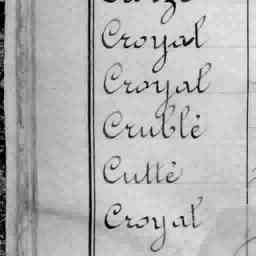 Croyal
Croyal
Crublé
Cutté
Croyal